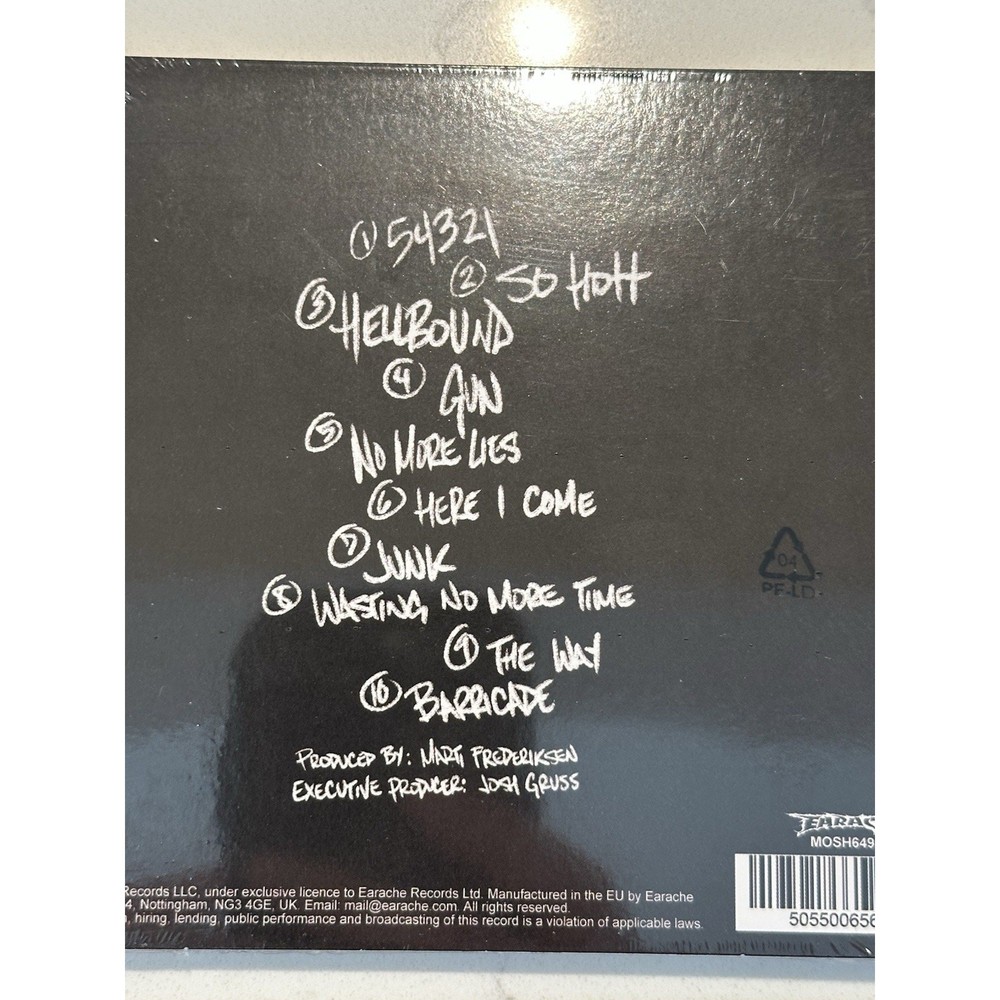 ① 54321
② SO HOTT
③ HELLBOUND
④ GUN
⑤ NO MORE LIES
⑥ HERE I COME
⑦ JUNK
⑧ WASTING NO MORE TIME
⑨ THE WAY
⑩ BARRICADE
PRODUCED BY: MARTI FREDERIKSEN
EXECUTIVE PRODUCER: JOSH GRUSS
04
PF-LD
EARAC
MOSH649
505500656
Records LLC, under exclusive licence to Earache Records Ltd. Manufactured in the EU by Earache
4, Nottingham, NG3 4GE, UK. Email: mail@earache.com. All rights reserved.
, hiring, lending, public performance and broadcasting of this record is a violation of applicable laws.